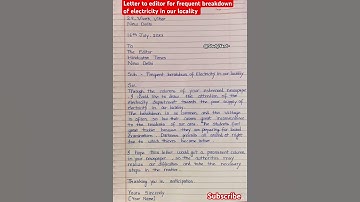 Letter to editor for frequent breakdown
of electricity in our locality
27, Vivek Vihar
New Delhi
12th July, 2021
To
The Editor
Hindustan Times
New Delhi
Sub - Frequent breakdown of Electricity in our locality
Sir,
Through the columns of your esteemed newspaper
I would like to draw the attention of the
electricity department towards the poor supply of
electricity in our locality.
The breakdown is so common and the voltage
is often so low that causes great inconvenience
to the residents of our area. The students are in
great trouble because they are preparing for board
Examinations. Darkness prevails all around at night
due to which thieves become
I hope this letter would get a prominent column
in your newspaper, so the authorities may
realise our difficulties and take the necessary
steps in the matter.
Thanking you in anticipation
Yours Sincerely
(Your Name)
Subscribe